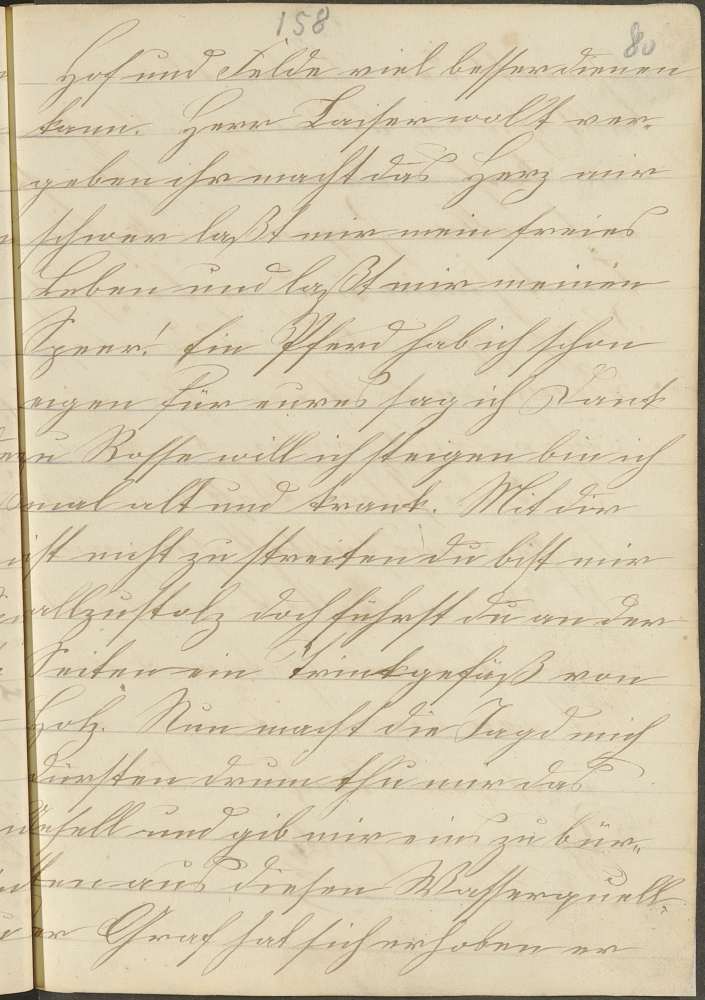 158
80
Hof und Felde viel besser dienen
kann. Herr Kaiser wollt ver-
geben ihr macht das Herz mir
schwer laßt mir mein freies
Leben und laßt mir meinen
Speer! Ein Pferd hab ich schon
eigen für eures sag ich Dank
zu Rosse will ich steigen bin ich
mal alt und krank. Mit dir
ist nicht zu streiten du bist mir
allzustolz doch führst du an der
Seiten ein Trinkgefäß von
Holz. Nun macht die Jagd mich
dürsten drum thu mir das
Gesell und gib mir eins zu bür-
sten aus diesen Wasserquell.
Der Graf hat sich erhoben er